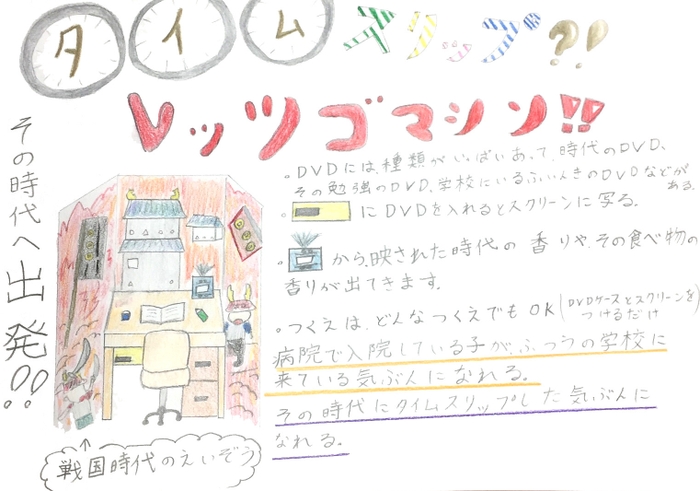 タイムスリップ?!
レッツゴマシン!!
その時代へ出発!!
・DVDには、種類がいっぱいあって、時代のDVD、
その勉強のDVD、学校にいるふいんきのDVDなどが
ある。
・にDVDを入れるとスクリーンに写る。
・から、映された時代の香りや、その食べ物の
香りが出てきます。
・つくえは、どんなつくえでもOK(DVDケースとスクリーンを
つけるだけ)
病院で入院している子が、ふつうの学校に
来ている気ぶんになれる。
その時代にタイムスリップした気ぶんに
なれる。
戦国時代のえいぞう